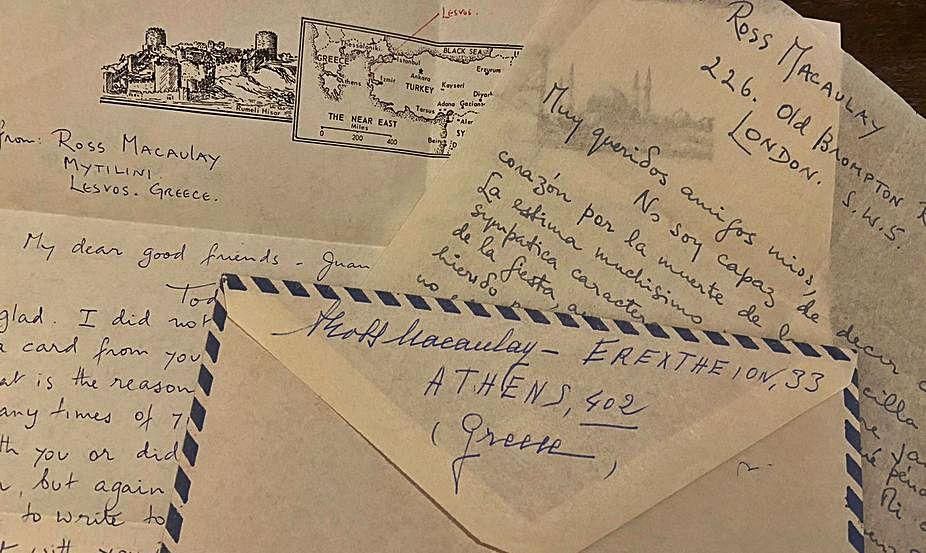 LESVOS.
BLACK SEA
Thessaloniki
GREECE
Istanbul
Ankara
Erzurum
Athens
Izmir
TURKEY
Kayseri
Diyar
Tarsus
Adana
Gazian
THE NEAR EAST
Miles
0 200 400
SY
Rumeli Hisar
from: ROSS MACAULAY
MYTILINI.
LESVOS. GREECE.
My dear good friends - Juan
glad. I did not
a card from you
at is the reason
any times of
th you or did
, but again
to write to
ROSS MACAULAY
226. Old BROMPTON R
LONDON. S.W.5.
Muy queridos amigos mios,
No soy capaz de decir
corazón por la muerte de
La estima muchisimo
sympatica caracter
de la fiesta
Ross Macaulay - EREXTHEION, 33
ATHENS, 402
(Greece)